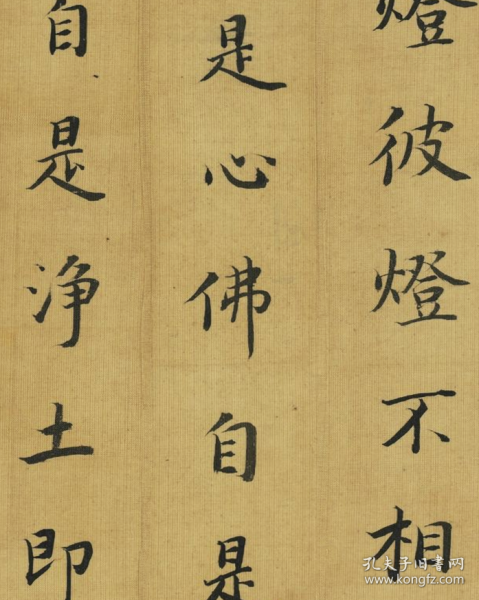 燈彼燈不相
是心佛自是
自是淨土即
孔夫子旧书网
www.kongfz.com